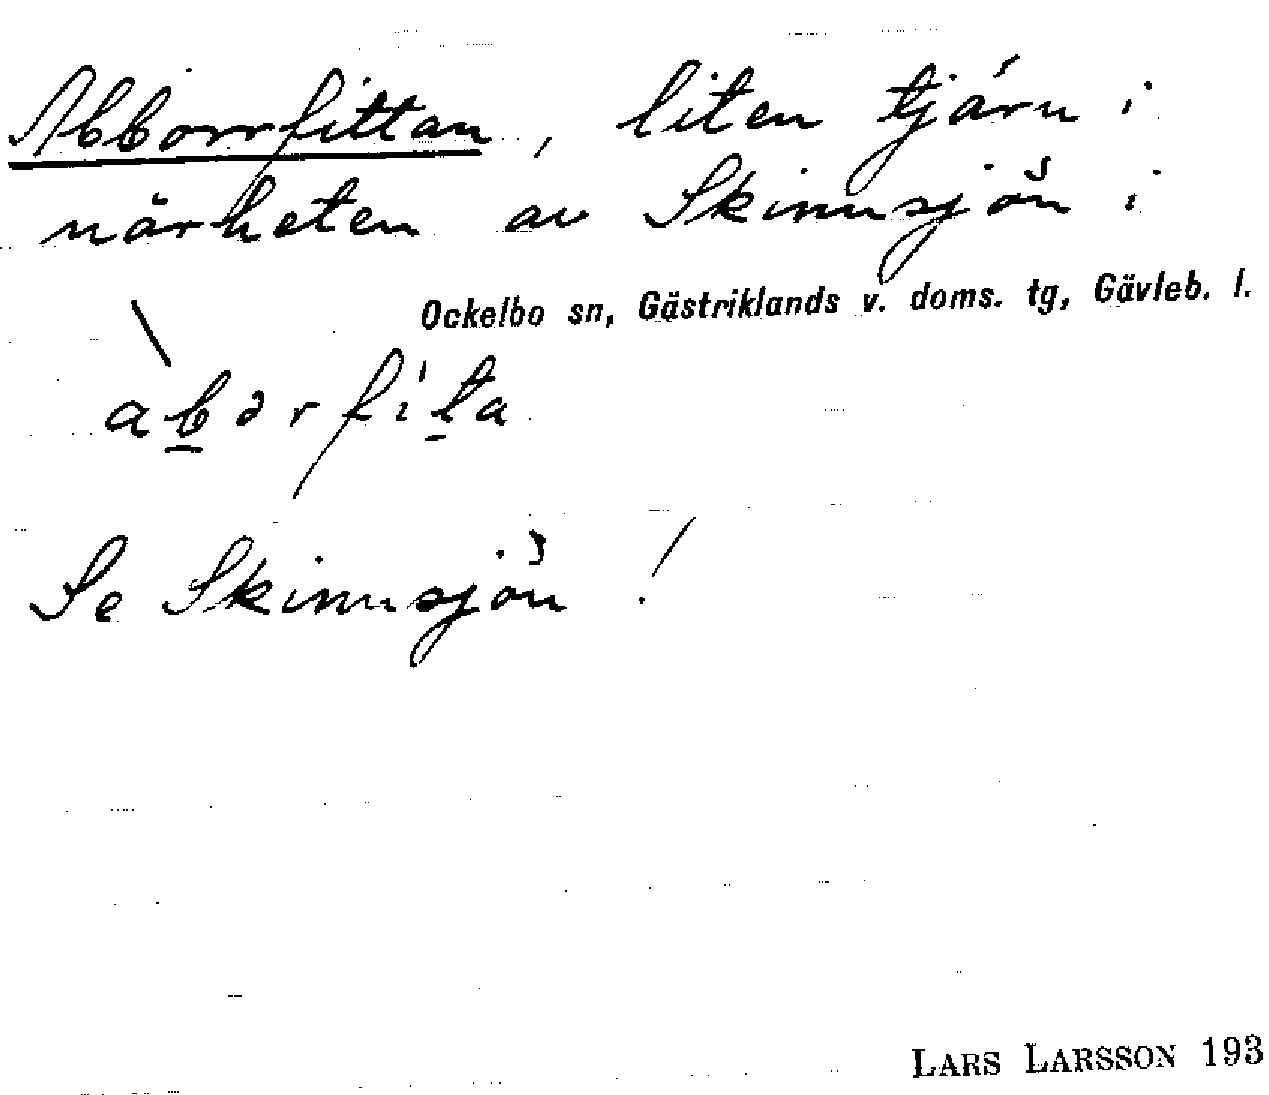 Abborrfittan, liten tjärn i
närheten av Skinnsjön i
Ockelbo sn, Gästriklands v. doms. tg, Gävleb. l.
abərfita
Se Skinnsjön!
LARS LARSSON 193